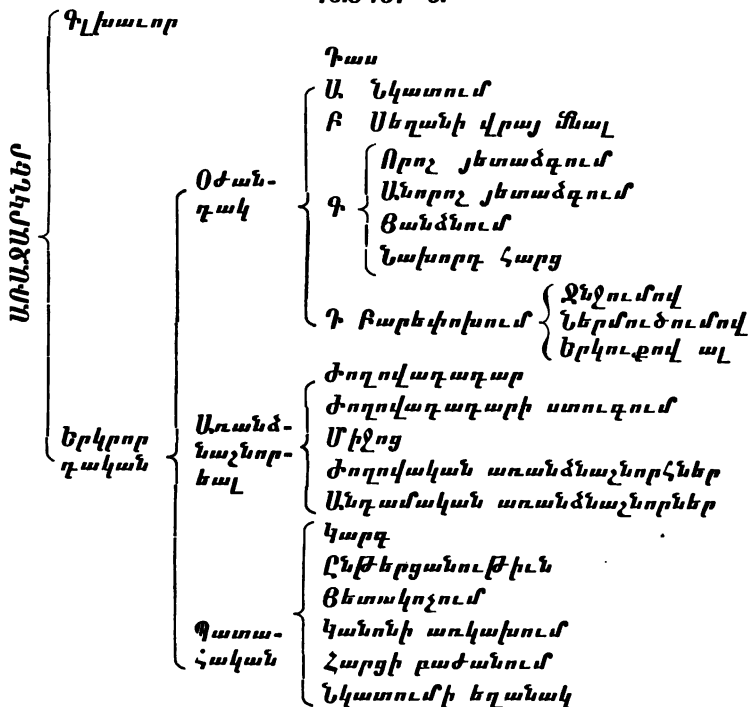 Գլխաւոր
ԱՌԱՋԱՐԿՆԵՐ
Երկրոր
դական
Օժան-
դակ
Դաս
Ա Նկատում
Բ Սեղանի վրայ մնալ
Գ
Որոշ յետաձգում
Անորոշ յետաձգում
Յանձնում
Նախորդ հարց
Դ Բարեփոխում
Ջնջումով
Ներմուծումով
Երկուքով ալ
Առանձ-
նաշնոր-
եալ
Ժողովադադար
Ժողովադադարի ստուգում
Միջոց
Ժողովական առանձնաշնորհներ
Անդամական առանձնաշնորներ
Պատա-
հական
Կարգ
Ընթերցանութիւն
Յետսկոչում
Կանոնի առկախում
Հարցի բաժանում
Նկատումի եղանակ